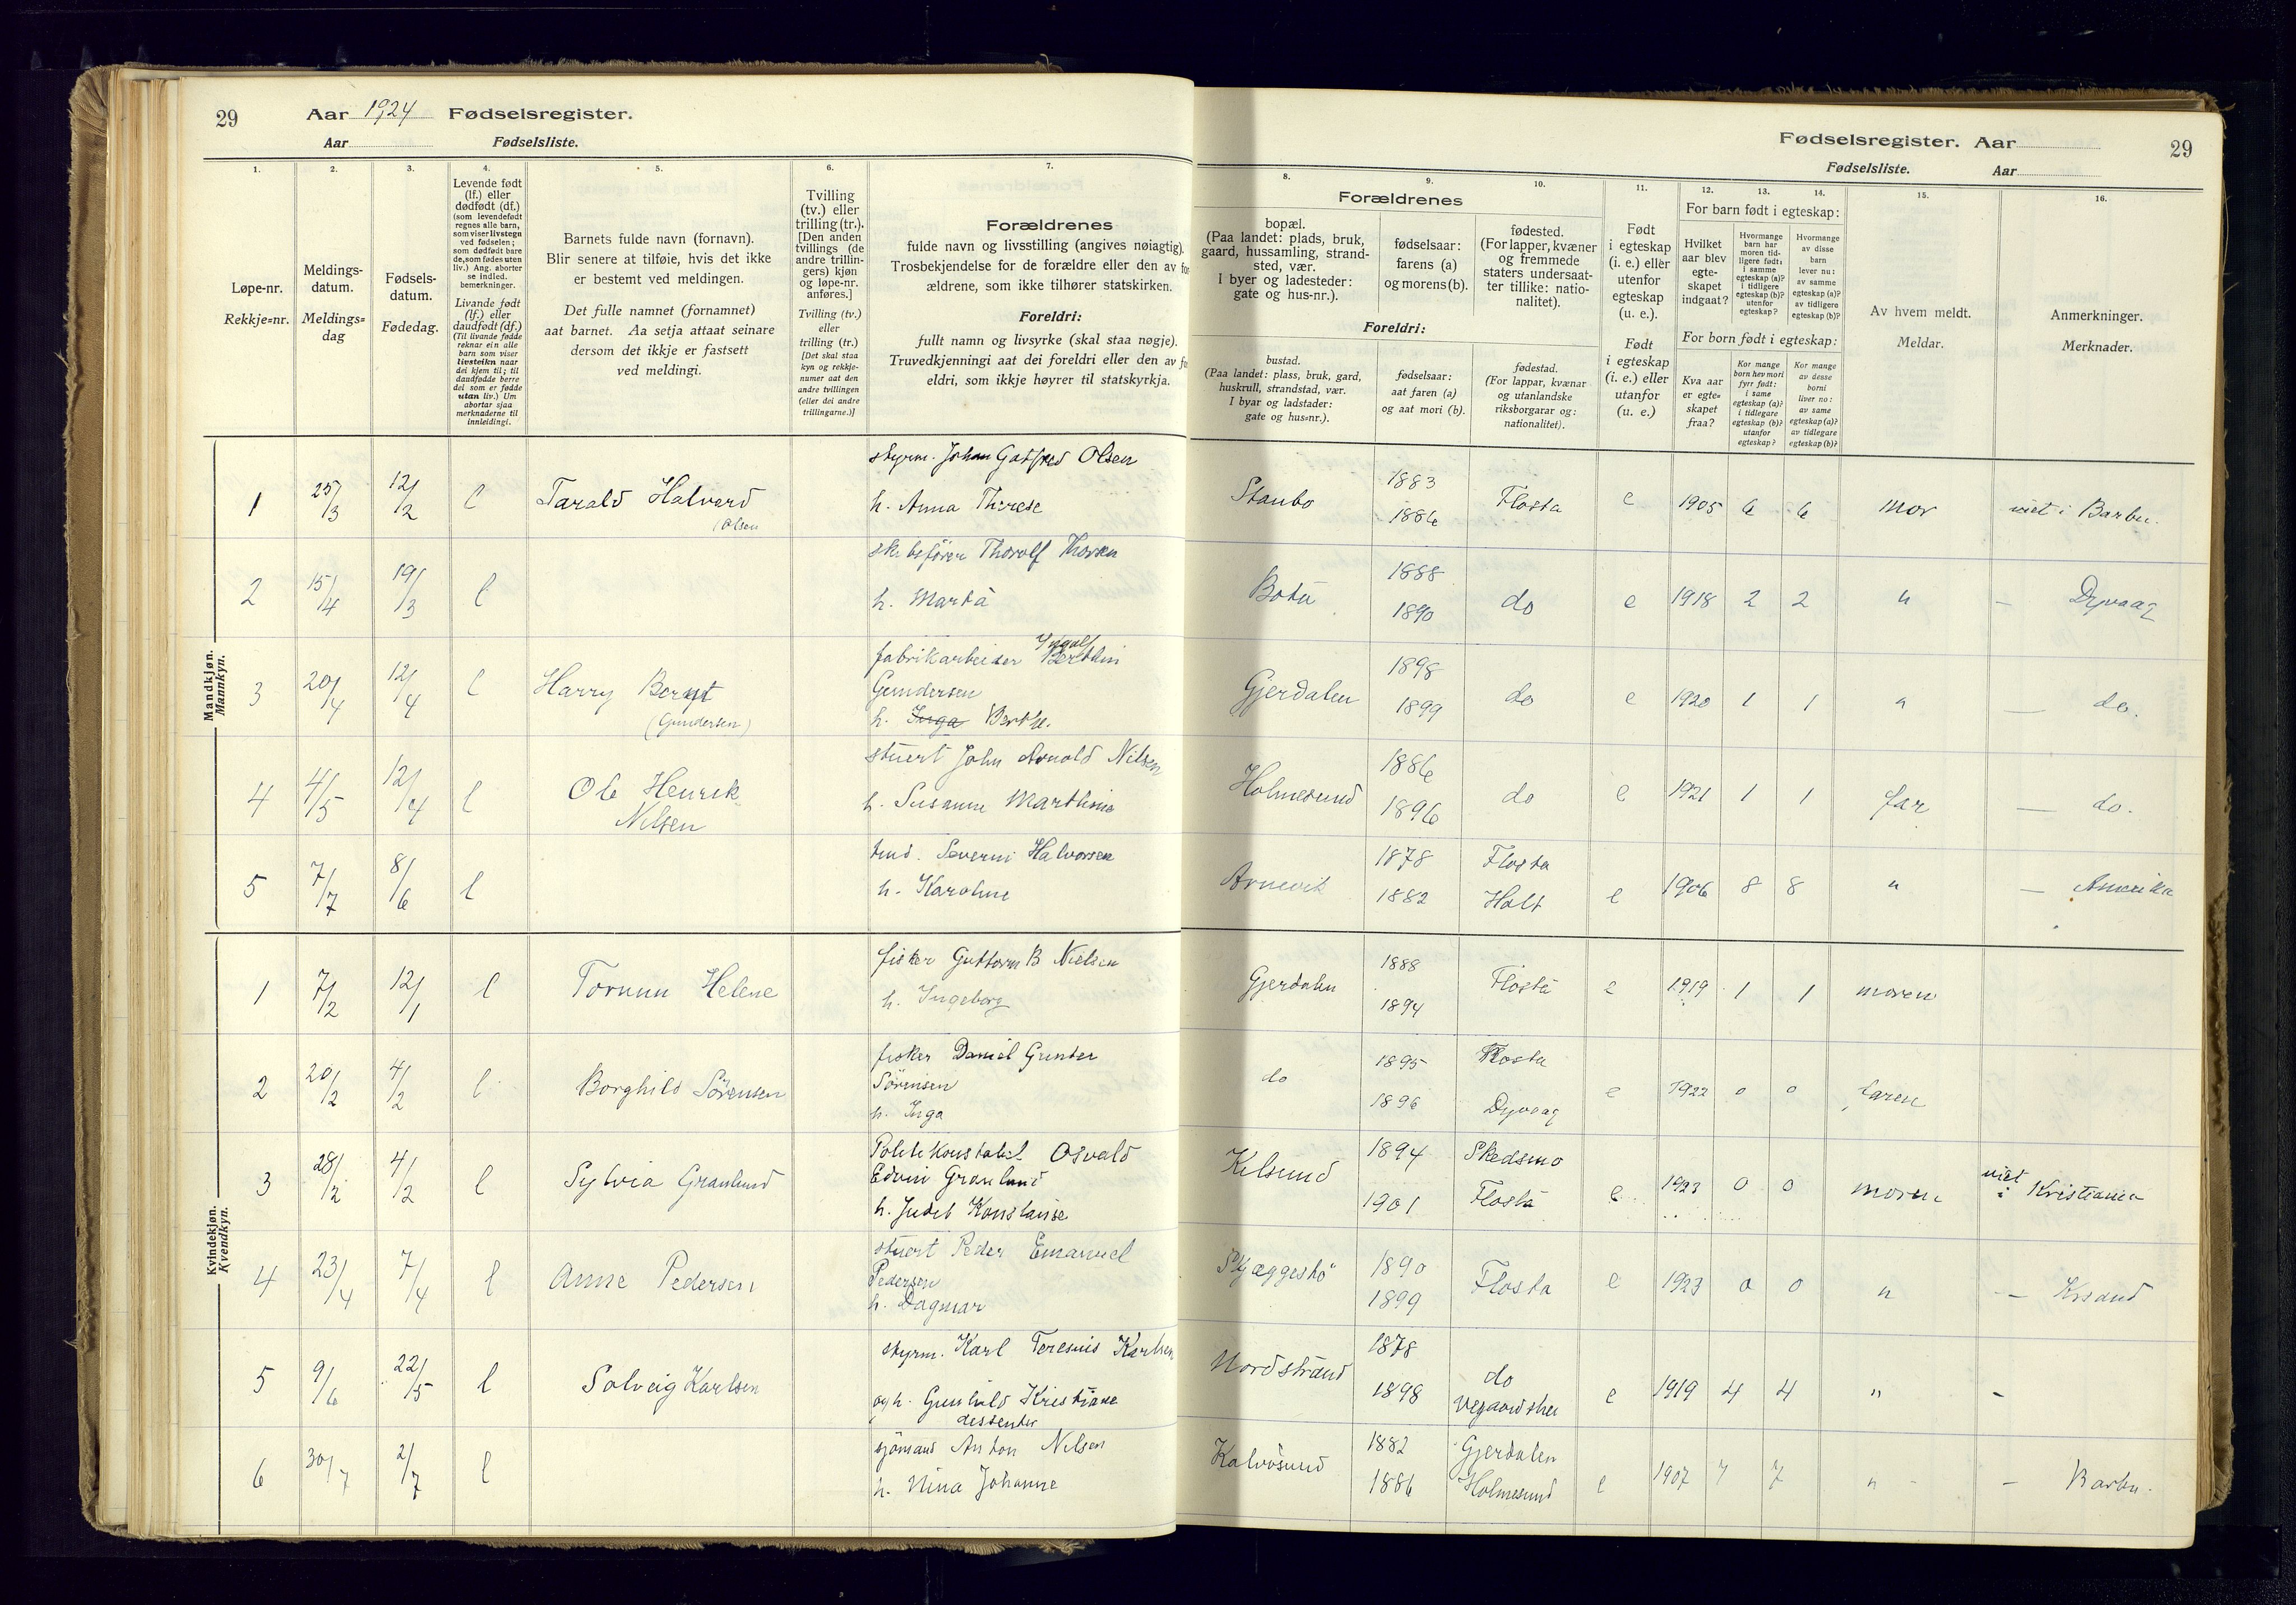 29 Aar 1924 Fødselsregister.
Aar Fødselsliste.
Fødselsregister. Aar 29
Fødselsliste. Aar
1. 2. 3. 4. 5. 6. 7.
Løpe-nr.
Rekkje=nr.
Meldings-
datum.
Meldings=
dag
Fødsels-
datum.
Fødedag.
Levende født
(lf.) eller
dødfødt (df.)
(som levendefødt
regnes alle barn,
som viser livstegn
ved fødselen;
som dødfødt bare
de, som fødes uten
liv.) Ang. aborter
se indled.
bemerkninger.
Livande født
(lf.) eller
daudfødt (df.)
(Til livande fødde
reknar ein alle
barn som viser
livsteikn naar
dei kjem til; til
daudfødde berre
dei som er fødde
utan liv.) Um
abortar sjaa
merknaderne til
innleidingi.
Barnets fulde navn (fornavn).
Blir senere at tilføie, hvis det ikke
er bestemt ved meldingen.
Det fulle namnet (fornamnet)
aat barnet. Aa setja attaat seinare
dersom det ikkje er fastsett
ved meldingi.
Tvilling
(tv.) eller
trilling (tr.).
[Den anden
tvillings (de
andre trillin-
gers) kjøn
og løpe-nr.
anføres.]
Tvilling (tv.)
eller
trilling (tr.)
[Det skal staa
kyn og rekkje-
numer aat den
andre tvillingen
(eller dei andre
trillingarne.)]
Forældrenes
fulde navn og livsstilling (angives nøiagtig).
Trosbekjendelse for de forældre eller den av for
ældrene, som ikke tilhører statskirken.
Foreldri:
fullt namn og livsyrke (skal staa nøgje).
Truvedkjenningi aat dei foreldri eller den av f
eldri, som ikkje høyrer til statskyrkja.
8. 9. 10. 11. 12. 13. 14. 15. 16.
Forældrenes
bopæl.
(Paa landet: plads, bruk,
gaard, hussamling, strand-
sted, vær.
I byer og ladesteder:
gate og hus-nr.).
fødselsaar:
farens (a)
og morens (b).
fødested.
(For lapper, kvæner
og fremmede
staters undersaat-
ter tillike: natio-
nalitet).
Foreldri:
bustad.
(Paa landet: plass, bruk, gard,
huskrull, strandstad, vær.
I byar og ladstader:
gate og hus=nr.).
fødselsaar:
aat faren (a)
og aat mori (b).
fødestad.
(For lappar, kvænar
og utanlandske
riksborgarar og:
nationalitet).
Født
i egteskap
(i. e.) eller
utenfor
egteskap
(u. e.).
Født
i egteskap
(i. e.) eller
utanfor
(u. e.)
For barn født i egteskap:
Hvilket
aar blev
egte-
skapet
indgaat?
Hvormange
barn har
moren tid-
ligere født:
i samme
egteskap (a)?
i tidligere
egteskap (b)?
utenfor
egteskap?
Hvormange
av disse
barn
lever nu:
av samme
egteskap (a)?
av tidligere
egteskap (b)?
For born født i egteskap:
Kva aar
er egte=
skapet
fraa?
Kor mange
born hev mori
fyrr født:
i same
egteskap (a)?
i tidlegare
egteskap (b)?
utanfor
egteskap?
Kor mange
av desse
borni
liver no:
av same
egteskap (a)?
av tidlegare
egteskap (b)?
Av hvem meldt.
Meldar.
Anmerkninger.
Merknader.
Mandkjøn.
Mannkyn.
1 25/3 12/2 l Tarald Halvard (Olsen styrm. Johan Gotfred Olsen
h. Anna Therese
Staubo 1883 1886 Flosta e 1905 6 6 mor viet i Barbu.
2 15/4 19/3 l sk. befører Thorolf Thorsen
h. Marta
Bota 1888 1890 do e 1918 2 2 " — Dyvaag
3 20/4 12/4 l Harry Bernt (Gundersen) fabrikarbeider Ingolf Berthin
Gundersen
h. Inga Berthe.
Gjerdalen 1898 1899 do e 1920 1 1 " — do.
4 4/5 12/4 l Ole Henrik
Nilsen
stuert John Arnold Nilsen
h. Susanne Marthine
Holmesund 1886 1896 do e 1921 1 1 far — do.
5 7/7 8/6 l Severin Halvorsen
h. Karoline
Arnevik 1878 1882 Flosta Holt e 1906 8 8 " — Amerika
Kvindekjøn.
Kvendkyn.
1 7/2 12/1 l Torunn Helene fisker Guttorm B Nielsen
h. Ingeborg
Gjerdalen 1888 1894 Flosta e 1919 1 1 moren
2 20/2 4/2 l Borghild Sörensen fisker Daniel Gunder
Sörensen
h. Inga
do 1895 1896 Flosta Dyvaag e 1922 0 0 faren
3 28/2 4/2 l Sylvia Granlund Politikonstabel Osvald
Edvin Granlund
h. Judit Konstanse
Kilsund 1894 1901 Skedsmo Flosta e 1923 0 0 moren viet i Kristiania
4 23/4 7/4 l Anne Pedersen stuert Peder Emanuel
Pedersen
h. Dagmar
Skjæggestö 1890 1899 Flosta e 1923 0 0 " — Krsand
5 9/6 22/5 l Solveig Karlsen styrm. Karl Teresius Karlsen
og h. Gunhild Kristiane
dissenter
Nordstrand 1878 1898 do Vegaardshei e 1919 4 4 " -
6 30/7 2/7 l sjömand Anton Nilsen
h. Nina Johanne
Kalvösund 1882 1886 Gjerdalen Holmesund e 1907 7 7 " — Barbu.